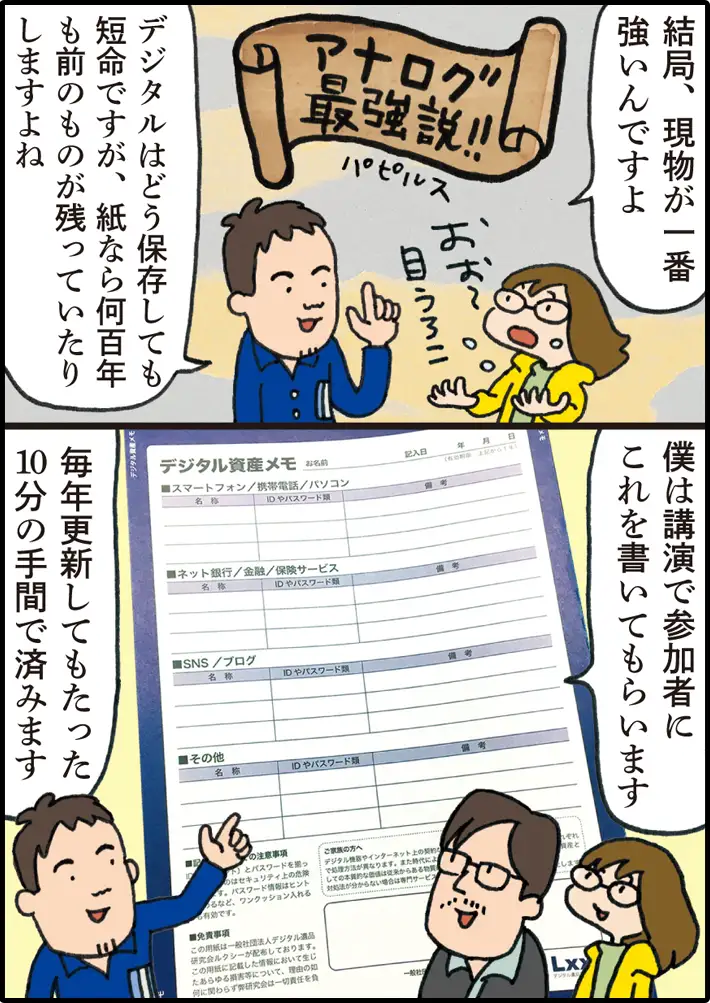 結局、現物が一番
強いんですよ
アナログ
最強説!!
パピルス
おお〜
目うろこ
デジタルはどう保存しても
短命ですが、紙なら何百年
も前のものが残っていたり
しますよね
僕は講演で参加者に
これを書いてもらいます
デジタル資産メモ
デジタル資産メモ お名前 記入日 年 月 日
■スマートフォン／携帯電話／パソコン
名 称 IDやパスワード類 備 考
■ネット銀行／金融／保険サービス
名 称 IDやパスワード類 備 考
■SNS／ブログ
名 称 IDやパスワード類 備 考
■その他
名 称 IDやパスワード類 備 考
の注意事項
とパスワードを揃っ
のはセキュリティ上の危険
す。パスワード情報はヒント
るなど、ワンクッション入れる
も有効です。
■免責事項
この用紙は一般社団法人デジタル遺品
研究会ルクシーが配布しております。
この用紙に記載した情報において生じ
たあらゆる損害等について、理由の如
何に関わらず弊研究会は一切責任を負
ご家族の方へ
デジタル機器やインターネット上の契約
で処理方法が異なります。また時代によ
しての本質的な価値は従来からある物
対処法が分からない場合は専門サービ
Lxx
毎年更新してもたった
10分の手間で済みます